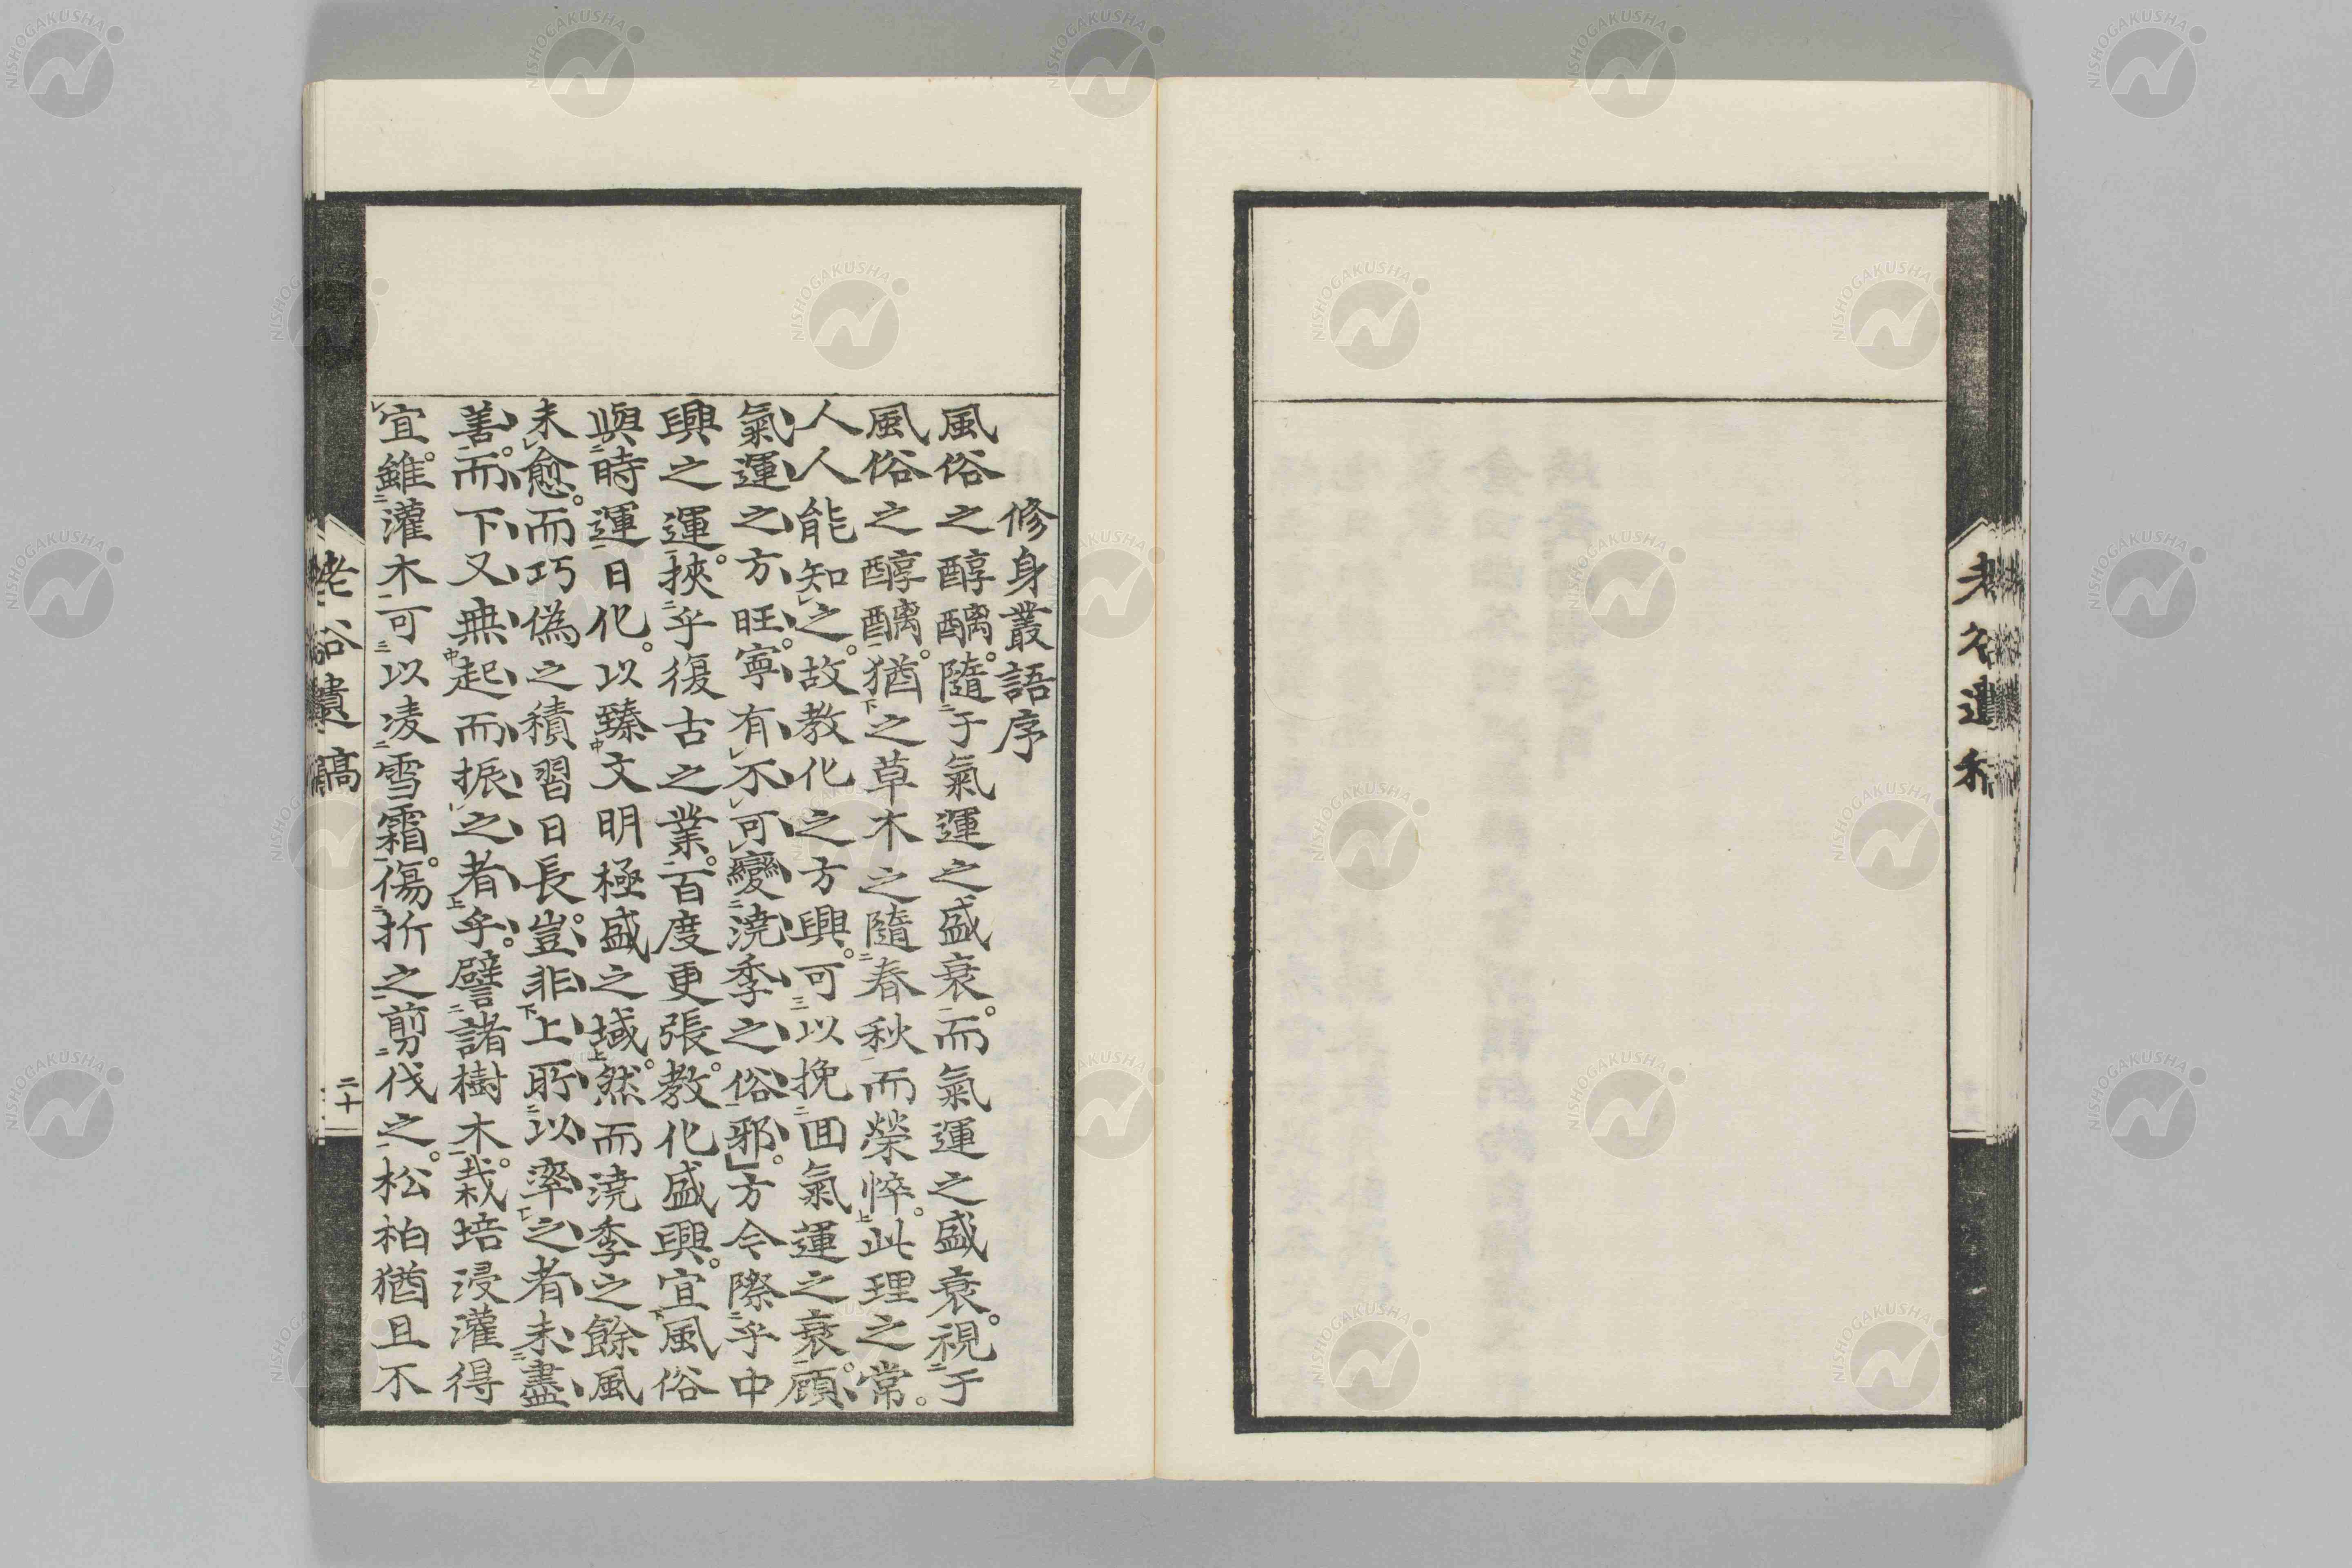 修身叢語序
風俗之醇醨。隨于氣運之盛衰。而氣運之盛衰。視于
風俗之醇醨。猶之草木之隨春秋而榮悴。此理之常。
人人能知之。故教化之方興。可以挽回氣運之衰。顧
氣運之方旺。寧有不可變澆季之俗邪。方今際乎中
興之運。挾乎復古之業。百度更張。教化盛興。宜風俗
與時運日化。以臻文明極盛之域。然而澆季之餘風
未愈。而巧偽之積習日長。豈非上所以率之者未盡
善。而下又無起而振之者乎。譬諸樹木。栽培浸灌得
宜。雖灌木可以凌雪霜。傷折之剪伐之。松柏猶且不
老谷遺稿
二十一
老谷遺稿
NISHOGAKUSHA